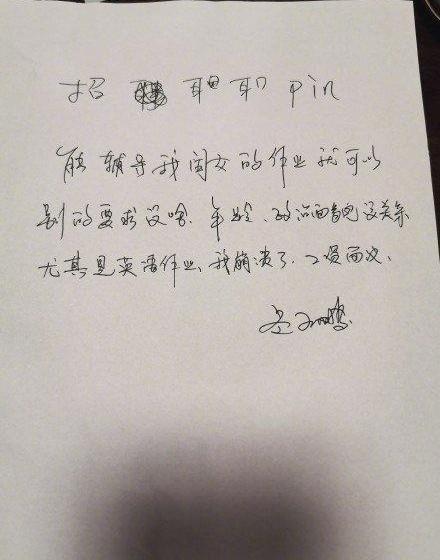 招 聃 职 pin
能辅导我闺女的作业就可以
别的要求没啥.年龄、政治面貌没关系
尤其是英语作业、我崩溃了.工资面议.
岳